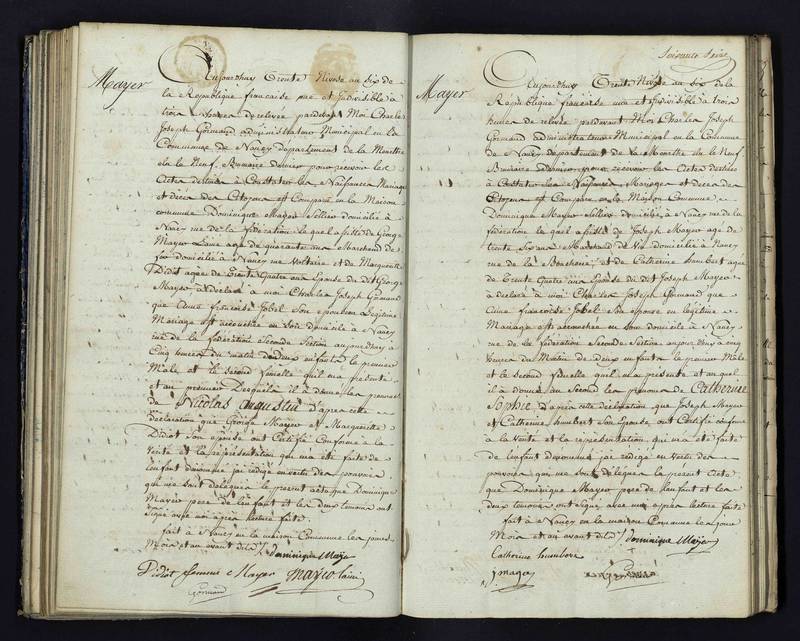 Mayer
Aujourdhuy Trente Nivose an six de
la République française une et Indivisible à
trois heures de relevée pardevant Moi Charles
Joseph Gormand administrateur Municipal en la
Commune de Nancy departement de la Meurthe
élu le Neuf Brumaire dernier pour recevoir les
Actes destinés à Constater les Naissances Mariages
et décès des Citoyens est Comparu en la Maison
commune Dominique Mayer Sellier domicilié à
Nancy rue de la fédération lequel assisté de George
Mayer Laine agé de quarante ans Marchand de
domicilié à Nancy rue Voltaire et de Marguerite
Didot agée de Trente quatre ans Epouse du dit George
Mayer a déclaré à moi Charles Joseph Gormand
que Anne françoise Jobel Son epouse en Legitime
Mariage est accouchée en Son domicile à Nancy
rue de la fédération Seconde Section aujourdhuy à
Cinq heures du matin de deux enfants le premier
Male et le Second femelle quil m'a présenté
et au premier Desquels il a donné les prenoms
de Nicolas Augustin d'apres cette
déclaration que George Mayer et Marguerite
Didot Son épouse ont Certifié Conforme à la
Verité et la représentation qui m'a été faite de
lenfant denommé j'ai redigé en vertu des pouvoirs
qui me sont délégués le present acte que Dominique
Mayer pere de lenfant et les deux temoins ont
Signé avec moi après lecture faite.
fait à Nancy en la maison Commune les jour
Mois et an avant dits / dominique Mayer
Didot femme Mayer mayer lainé
Gormand
Soixante Seize
Mayer
Aujourdhuy Trente Nivose an six de la
République française une et Indivisible à trois
heures de relevée pardevant Moi Charles Joseph
Gormand administrateur Municipal en la Commune
de Nancy departement de la Meurthe élu le Neuf
Brumaire dernier pour recevoir les Actes destinés
à Constater les Naissances Mariages et décès des
Citoyens est Comparu en la Maison Commune
Dominique Mayer Sellier domicilié à Nancy rue de la
fédération lequel assisté de Joseph Mayer agé de
trente Six ans Marchand de domicilié à Nancy
rue de la Boucherie, et de Catherine humbert agée
de Trente quatre ans Epouse du dit Joseph Mayer
a déclaré à moi Charles Joseph Gormand que
Anne françoise Jobel Son epouse en legitime
Mariage est accouchée en Son domicile à Nancy
rue de la fédération Seconde Section aujourdhuy à cinq
heures du Matin de deux enfants le premier Male
et le second femelle quil m'a présenté et auquel
il a donné au Second les prenoms de Catherine
Sophie d'apres cette déclaration que Joseph Mayer
et Catherine humbert Son Epouse ont Certifié conforme
à la Verité et la représentation qui m'a été faite
de lenfant denommé j'ai redigé en Vertu des
pouvoirs qui me sont délégués le present Acte
que Dominique Mayer pere de lenfant et les
deux temoins ont Signé avec moi après lecture faite
fait à Nancy en la maison Commune les jour
Mois et an avant dits / dominique Mayer
Catherine humbert
j mayer